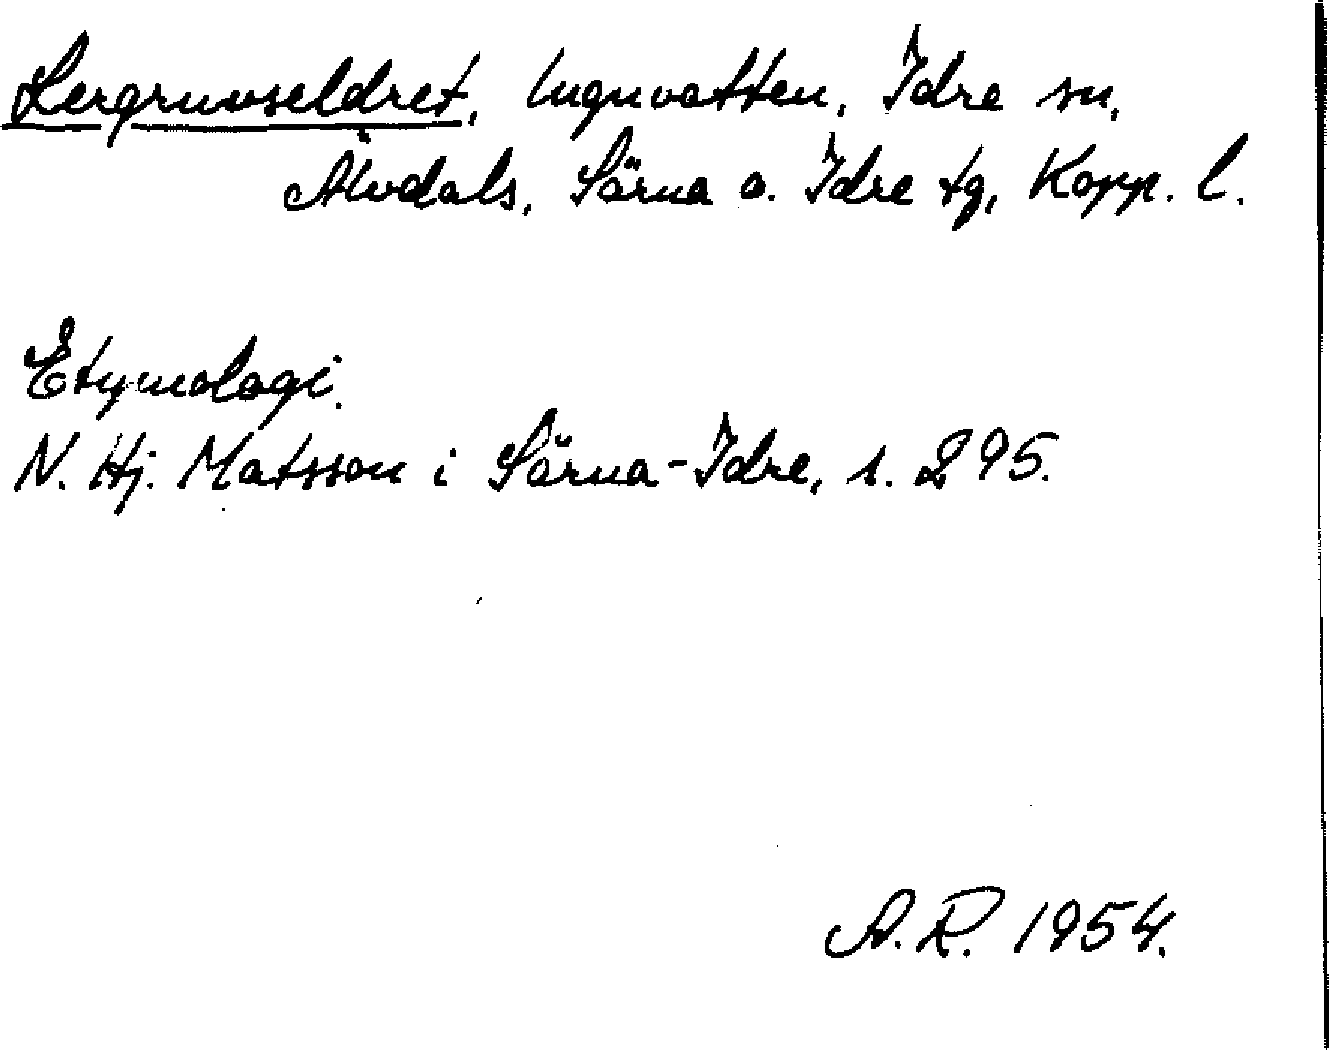 Lergruvseldret, lugnvatten, Idre sn,
Älvdals, Särna o. Idre tg, Kopp. l.
Etymologi.
N. Hj. Matsson i Särna-Idre, s. 295.
A. R. 1954.